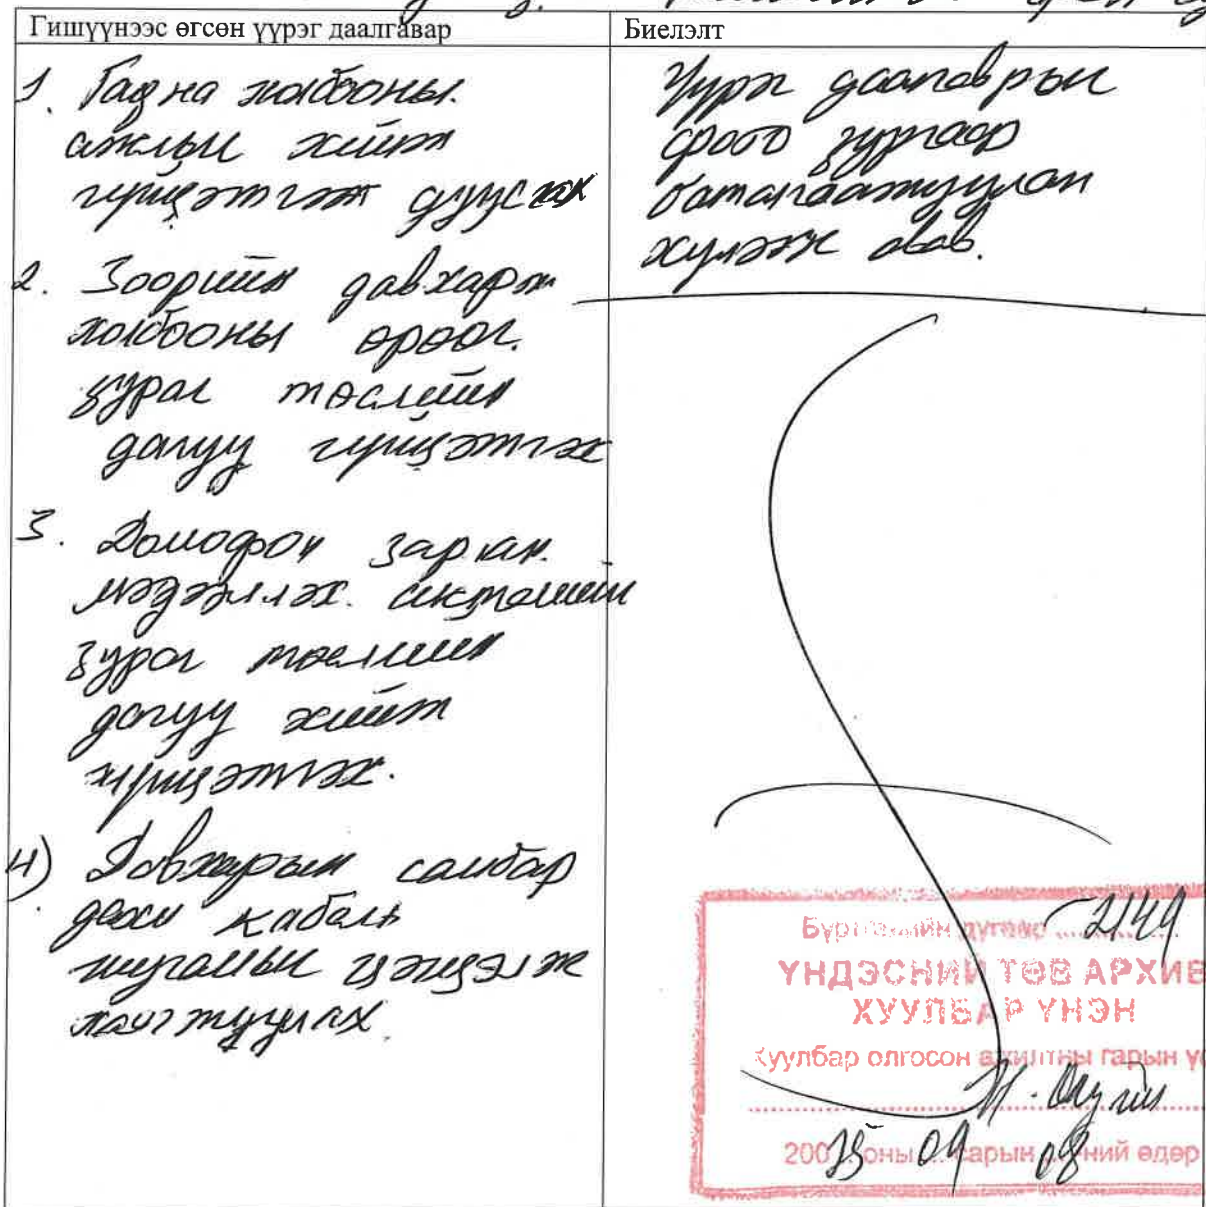 Гишүүнээс өгсөн үүрэг даалгавар
Биелэлт
1. Гадна холбооны
ажлын хийж
гүйцэтгэж дуусгах
2. Зоорийн давхарт
холбооны өрөөг
зураг төслийн
дагуу гүйцэтгэх
3. Домофон зарлан
мэдээллэх системийн
зураг төслийн
дагуу хийж
гүйцэтгэх.
4) Давхарын самбар
дахи кабель
шугамын цэгцэлж
хаягжуулах
Үүрэг даалгаврын
фото зургаар
баталгаажуулан
хүлээж авав.
Бүртгэлийн дугаар 2149
ҮНДЭСНИЙ ТӨВ АРХИВ
ХУУЛБАР ҮНЭН
Хуулбар олгосон ажилтны гарын үс
200 25 оны 09 сарын 08 ний өдөр